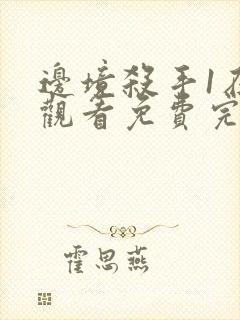 邊境殺手1在
觀看免費完
霍思燕